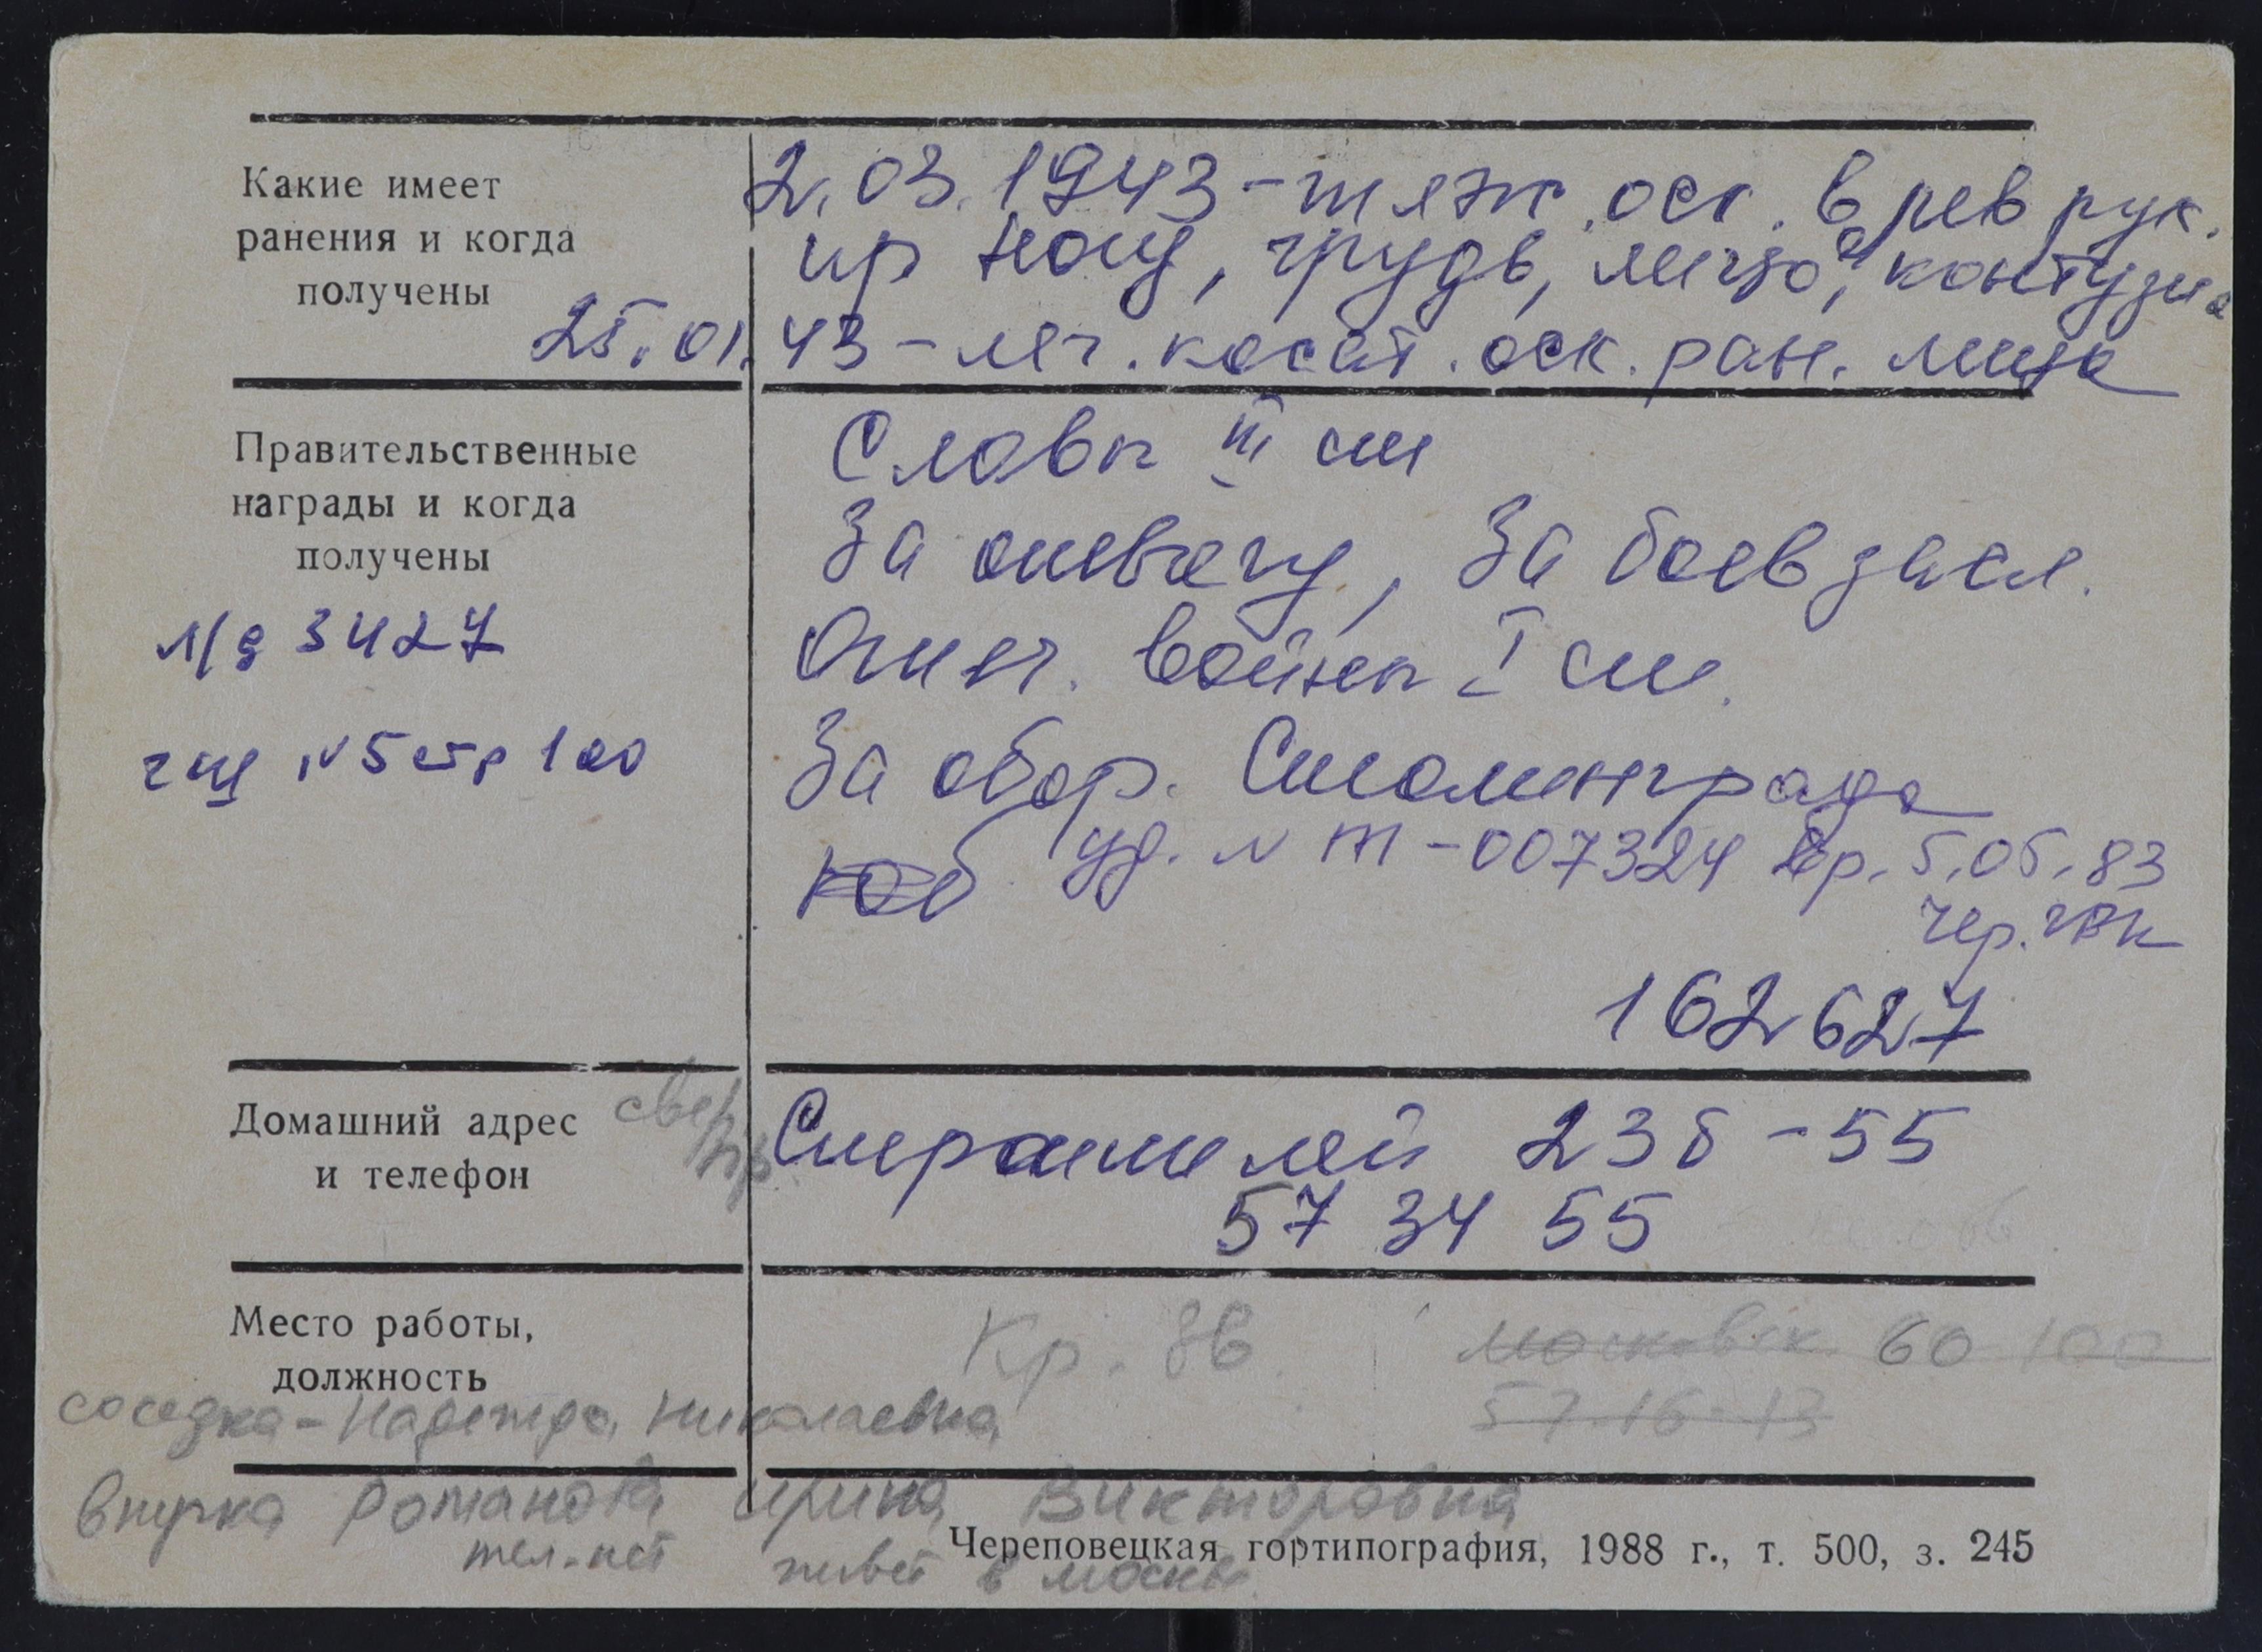 Какие имеет
ранения и когда
получены
2.03.1943 - тяж. оск. в лев рук.
пр ногу, грудь, лицо, контузия
25.01.43 - лег. касат. оск. ран. лица
Правительственные
награды и когда
получены
Славы III ст
За отвагу, За боев засл.
Отеч. войны I ст.
За обор. Сталинграда
л/д 3427
гщ N5 стр 100
уд. N Т-007324 вр. 5.05.83
Чер. ГВК
162627
Домашний адрес
и телефон
Строителей 23б - 55
57 34 55
Место работы,
должность
Кр. 8в
60 100
57-16-13
соседка - Надежда Николаевна
внучка Романова Ирина Викторовна
тел. нет живет в Москве
Череповецкая гортипография, 1988 г., т. 500, з. 245